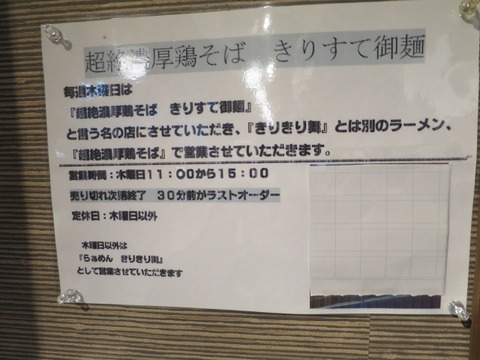 超絶濃厚鶏そば　きりすて御麺
毎週木曜日は
『超絶濃厚鶏そば　きりすて御麺』
と言う名の店にさせていただき、『きりきり舞』とは別のラーメン、
『超絶濃厚鶏そば』で営業させていただきます。
営業時間：木曜日１１：００から１５：００
売り切れ次第終了　３０分前がラストオーダー
定休日：木曜日以外
木曜日以外は
『らぁめん　きりきり舞』
として営業させていただきます